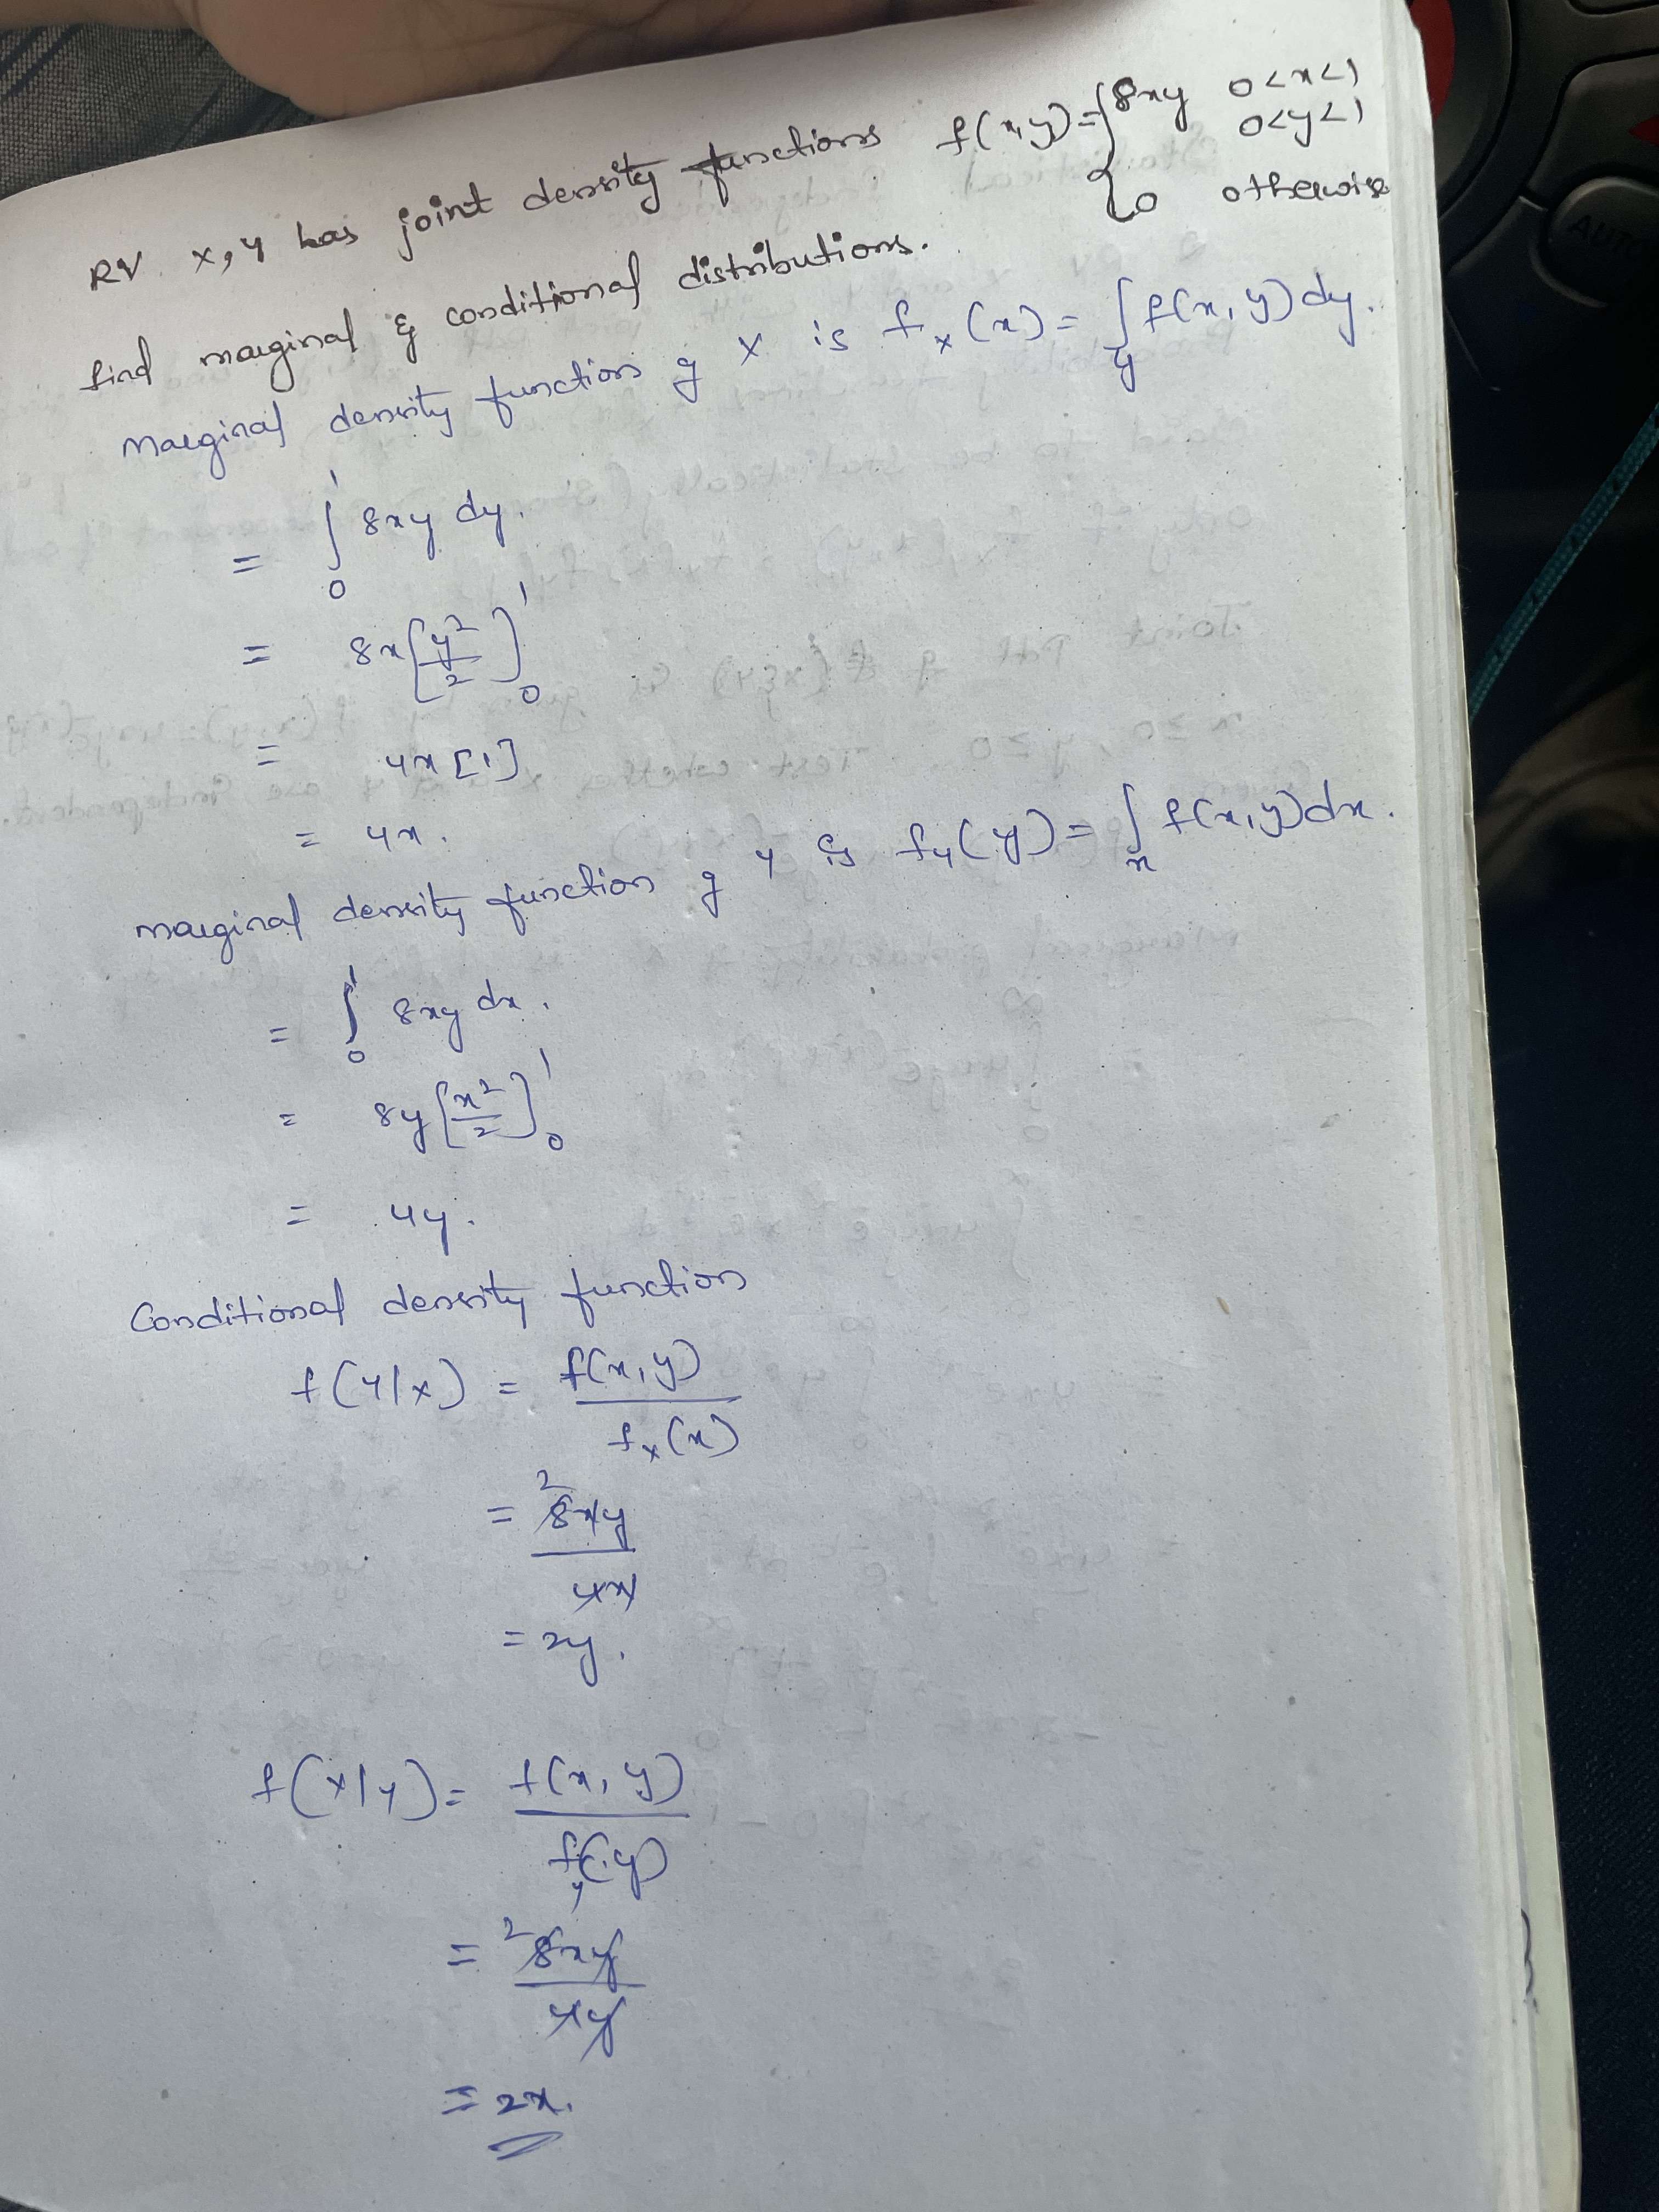 RV X, Y has joint density functions f(x,y) = { 8xy 0<x<1
0<y<1
0 otherwise
find marginal & conditional distributions.
Marginal density function of X is f_X(x) = ∫_y f(x,y) dy.
= ∫_0^1 8xy dy.
= 8x [y²/2]_0^1
= 4x [1]
= 4x.
marginal density function of Y is f_Y(y) = ∫_x f(x,y) dx.
= ∫_0^1 8xy dx.
= 8y [x²/2]_0^1
= 4y.
Conditional density function
f(Y/X) = f(x,y) / f_X(x)
= 8xy / 4x
= 2y.
f(X/Y) = f(x,y) / f_Y(y)
= 8xy / 4y
= 2x.
AUTO